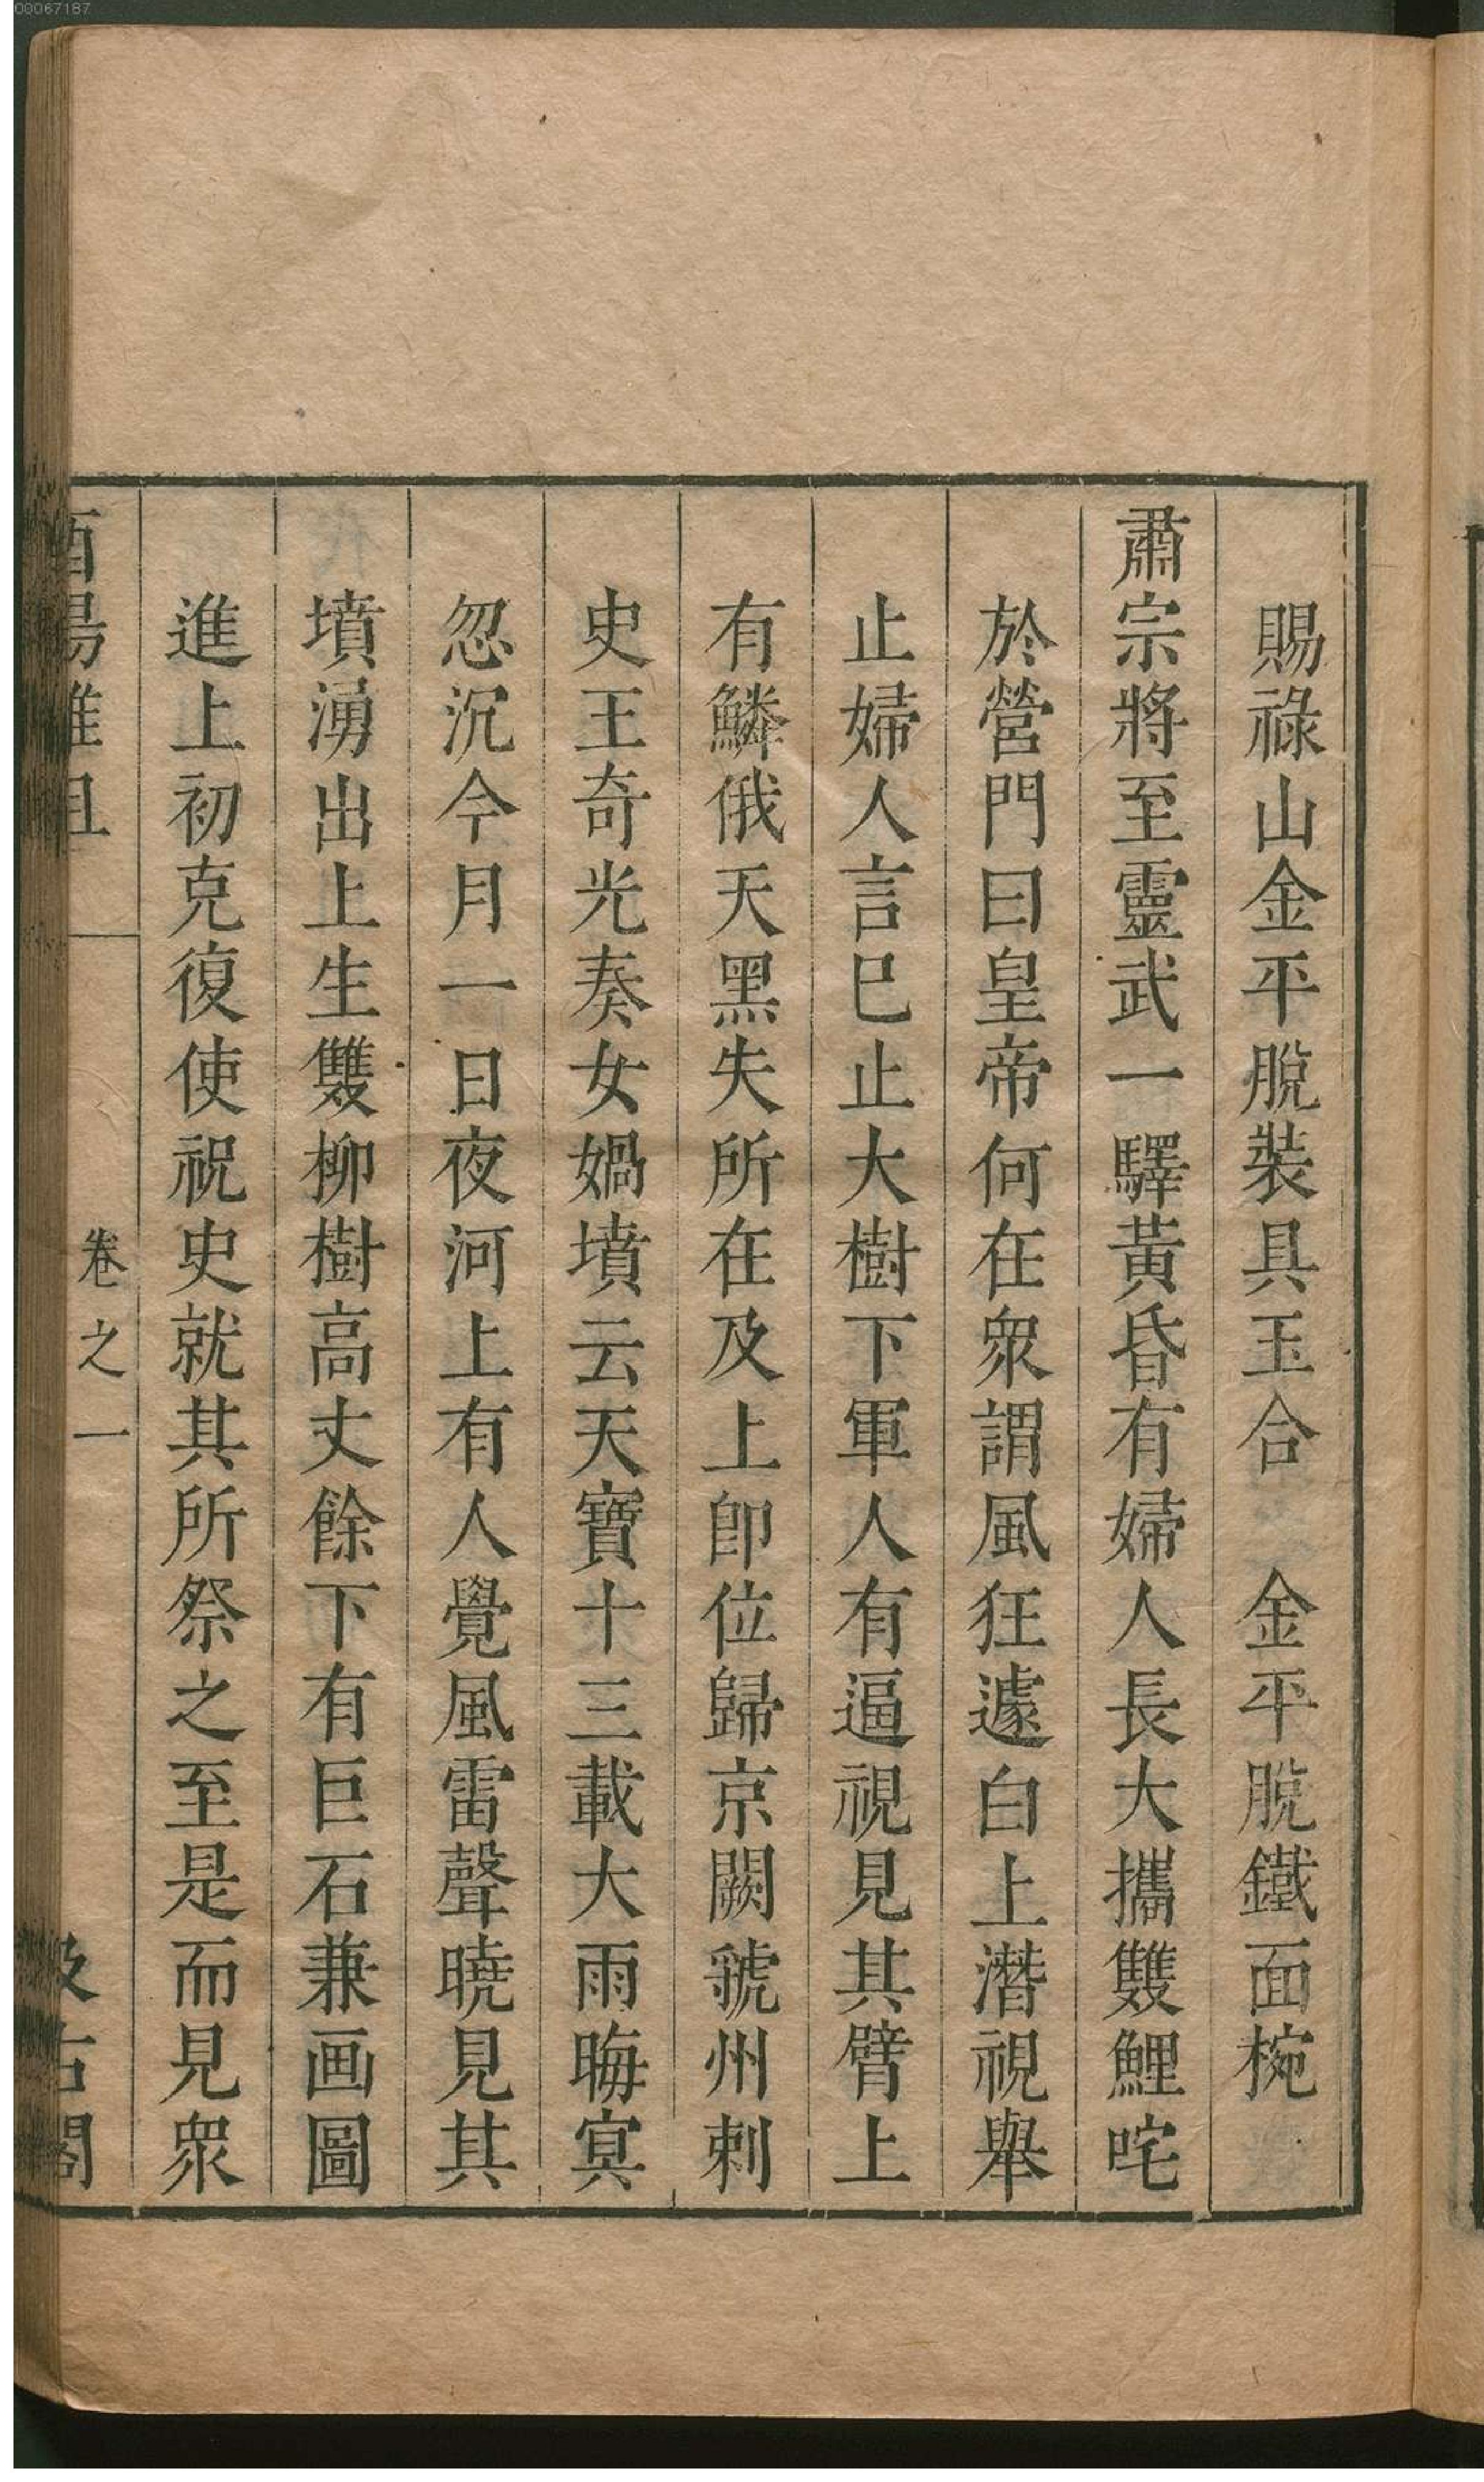 00067187
賜祿山金平脫裝具玉合　金平脫鐵面椀
肅宗將至靈武一驛黃昏有婦人長大攜雙鯉咤
於營門曰皇帝何在衆謂風狂遽白上潛視舉
止婦人言巳止大樹下軍人有逼視見其臂上
有鱗俄天黑失所在及上卽位歸京闕虢州刺
史王奇光奏女媧墳云天寶十三載大雨晦㝠
忽沉今月一日夜河上有人覺風雷聲曉見其
墳湧出上生雙柳樹高丈餘下有巨石兼画圖
進上初克復使祝史就其所祭之至是而見衆
酉陽雜俎　卷之一　汲古閣